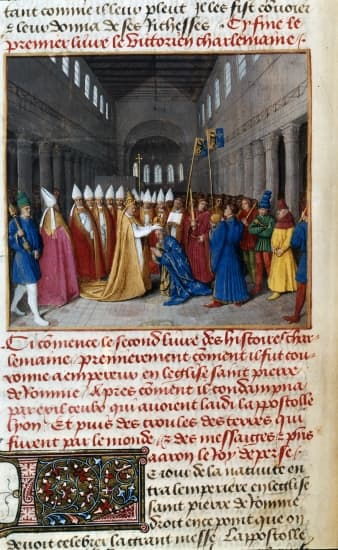 tant comme il leur pleut. Je les fist cōuoier
⁊ leur donna de ses richesses. Cy fine le
premier liure le Victorien charlemaine.
Cy cōmence le second liure des histoires char-
lemaine, premierement cōment il fut cou-
ronne a empereur en leglise saint pierre
de Romme. Apres cōment il condampna
par exil ceulx qui auoient laidi lappostolle
lyon. Et puis des croules des terres qui
furent par le monde, ⁊ des messaiges ⁊ puis
aaron le Roy de perse.
e iour de la natiuite en
tra lemperiere en leglise
saint pierre de Romme
droit en ce point que on
deuoit celebrer la grant messe. Lappostolle